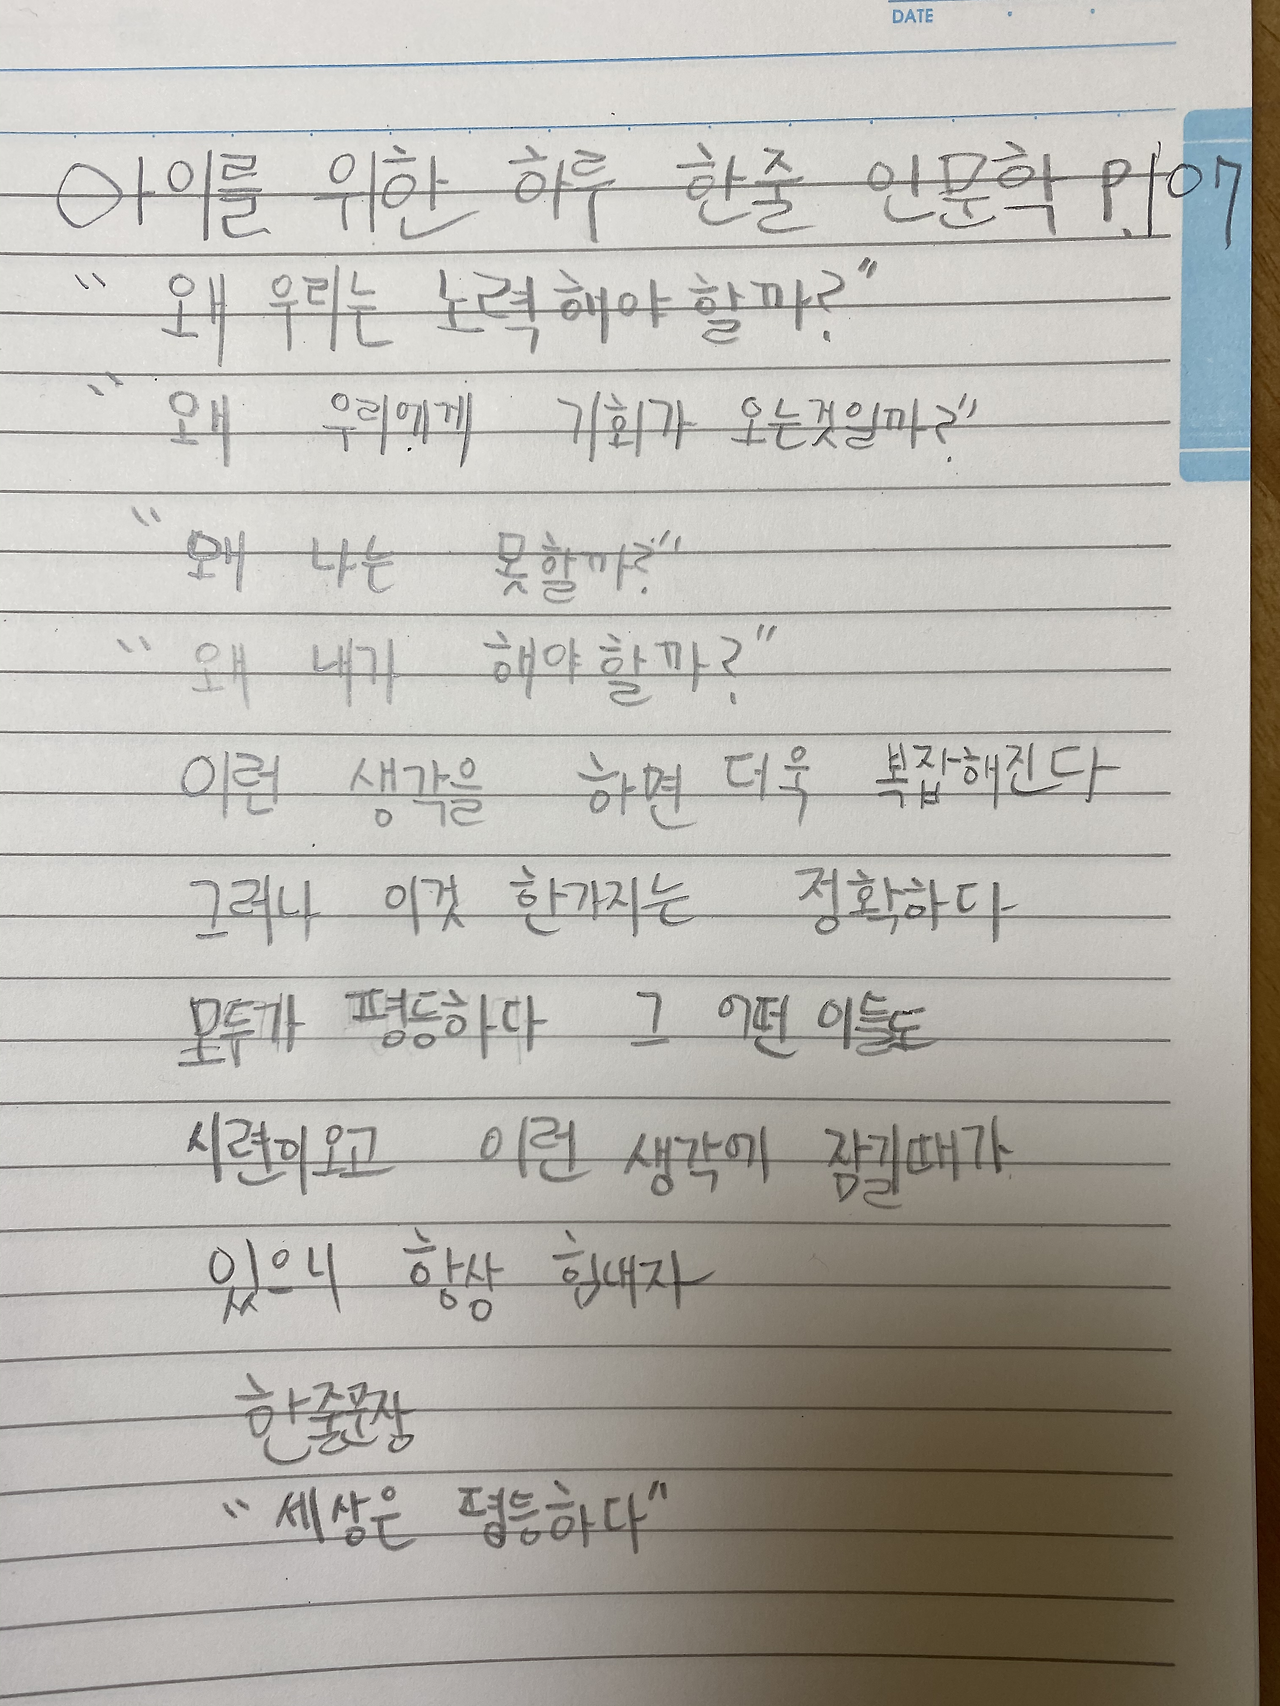 DATE
아이를 위한 하루 한줄 인문학 P.107
"왜 우리는 노력해야할까?"
"왜 우리에게 기회가 오는것일까?"
"왜 나는 못할까?"
"왜 내가 해야할까?"
이런 생각을 하면 더욱 복잡해진다
그러나 이것 한가지는 정확하다
모두가 평등하다 그 어떤 이들도
시련이오고 이런 생각에 잠길때가
있으니 항상 힘내자
한줄문장
"세상은 평등하다"